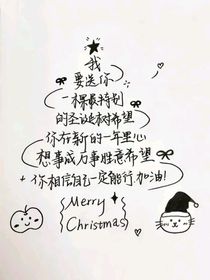 我
要送你
一棵最特别
的圣诞树希望
你在新的一年里心
想事成万事胜意希望
你相信自己一定能行加油!
Merry
Christmas